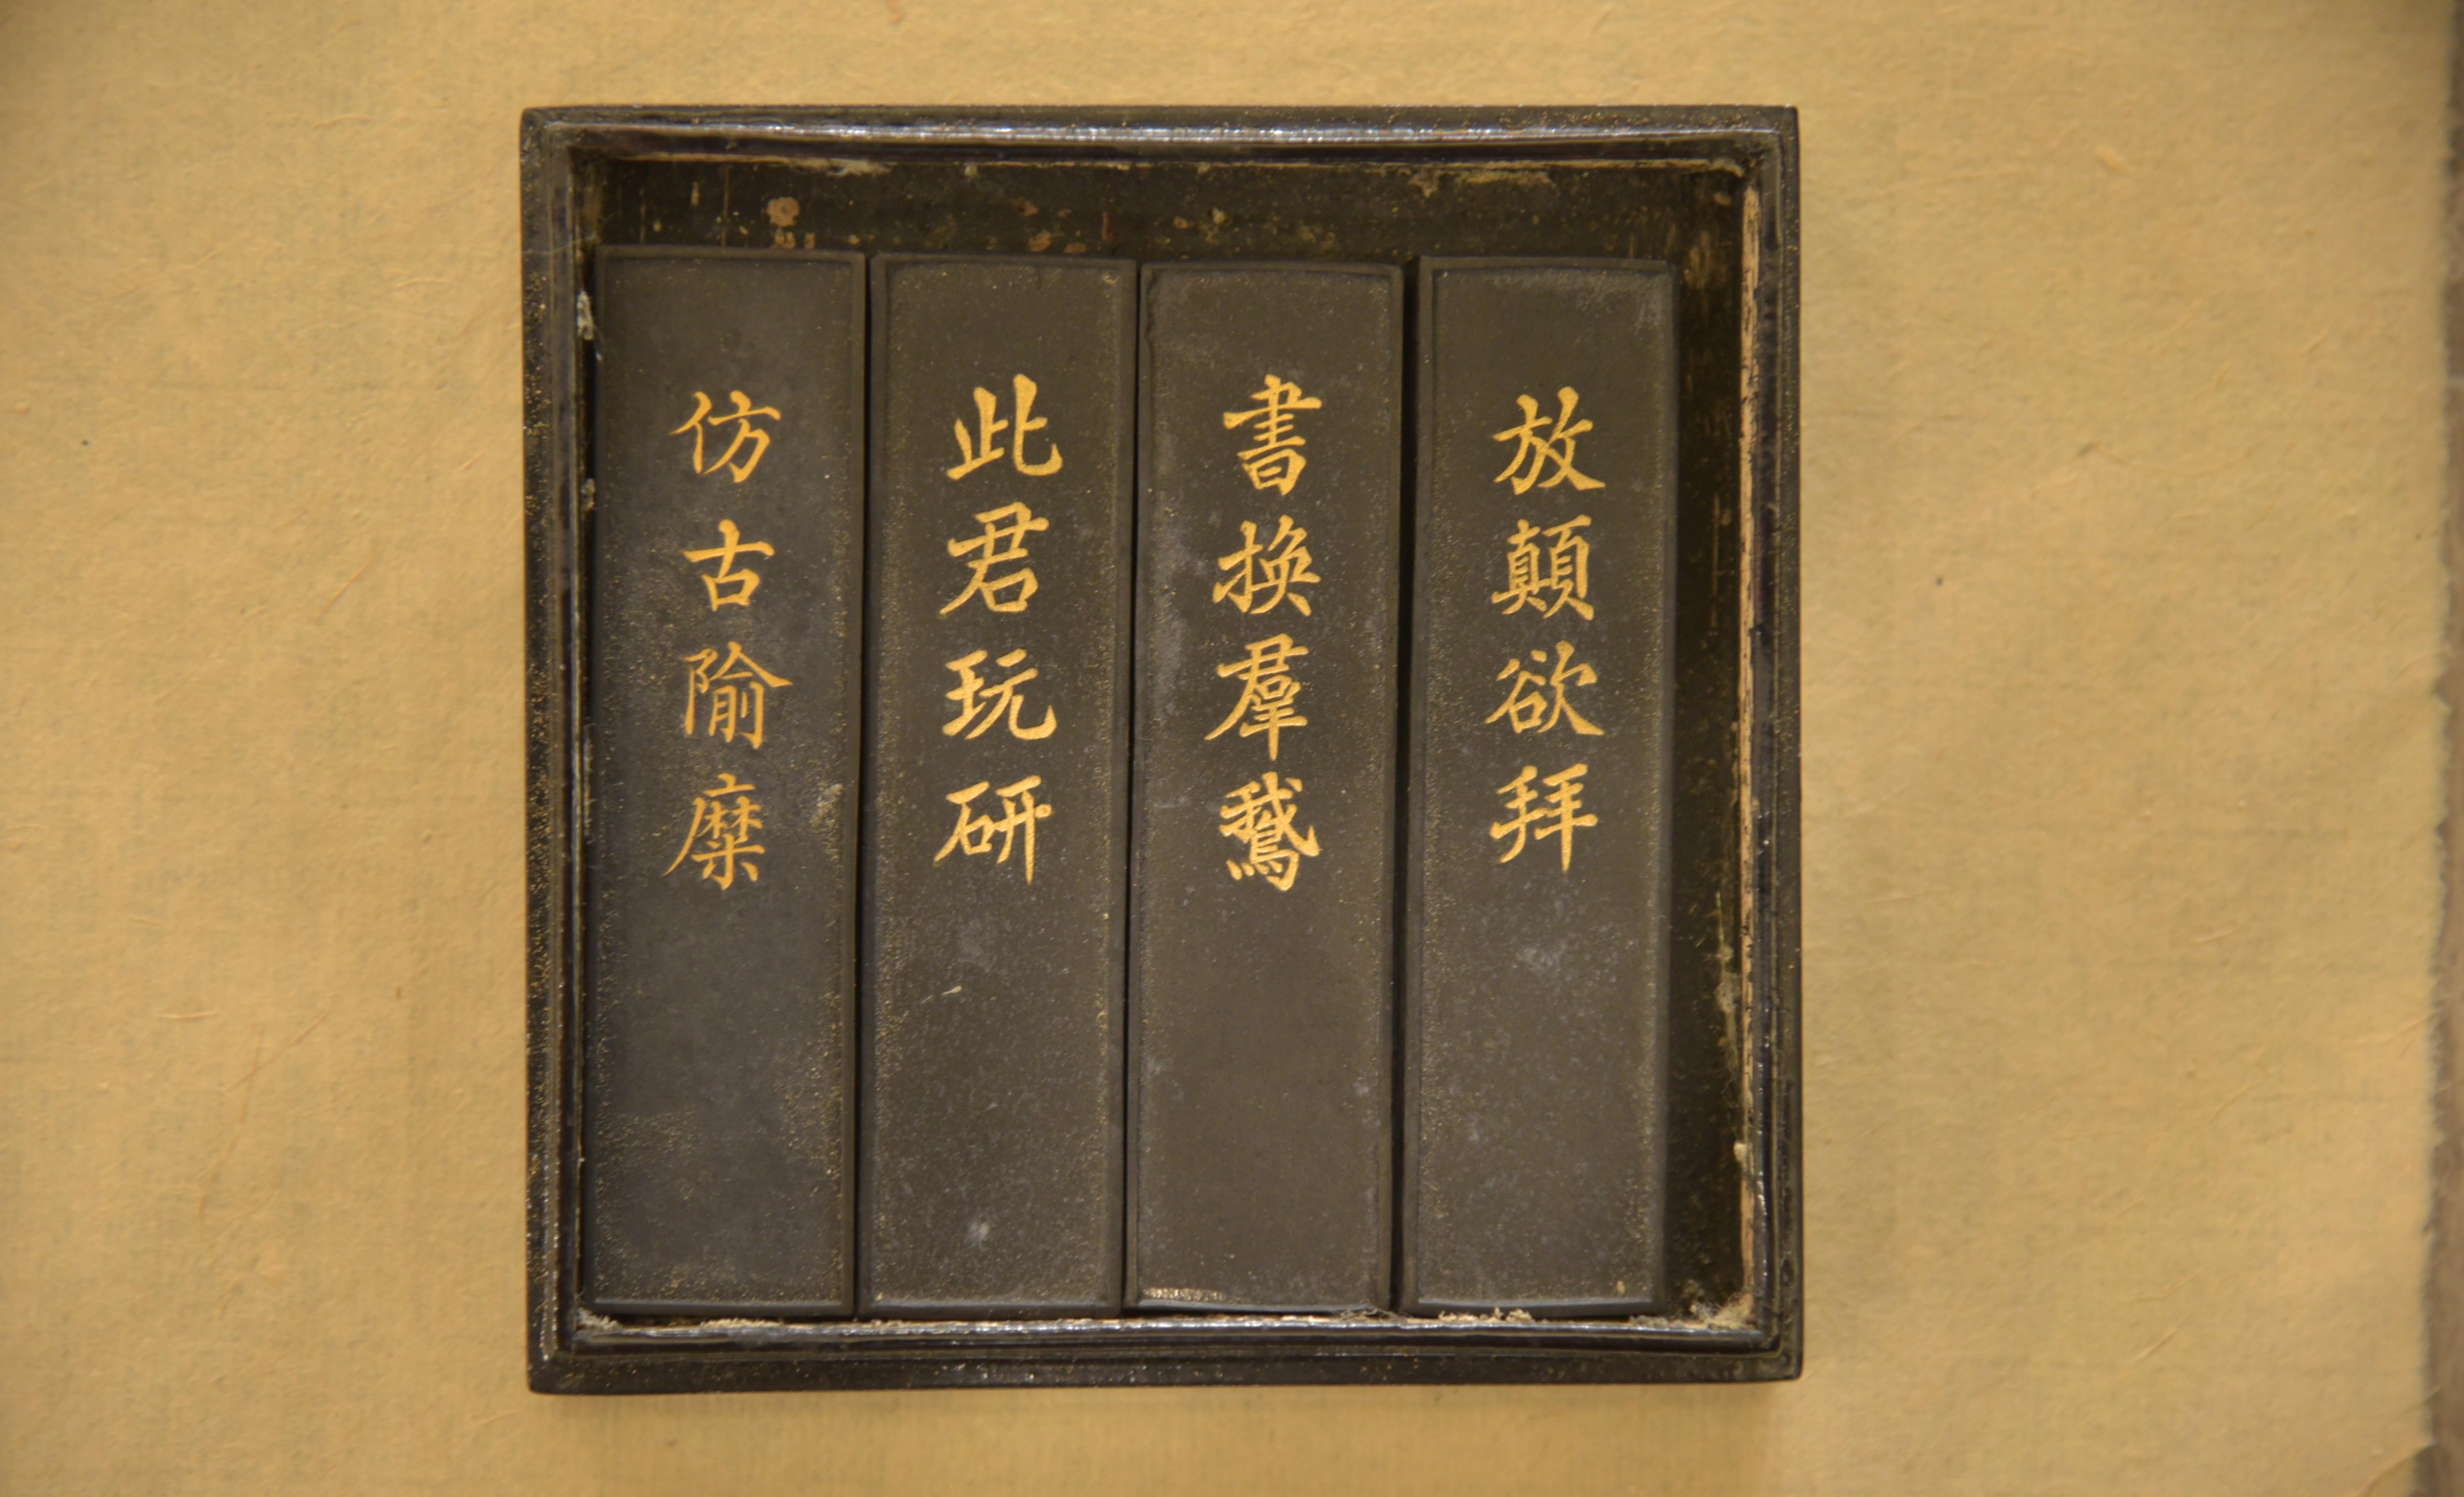 放顛欲拜
書換羣鵞
此君玩研
仿古隃糜